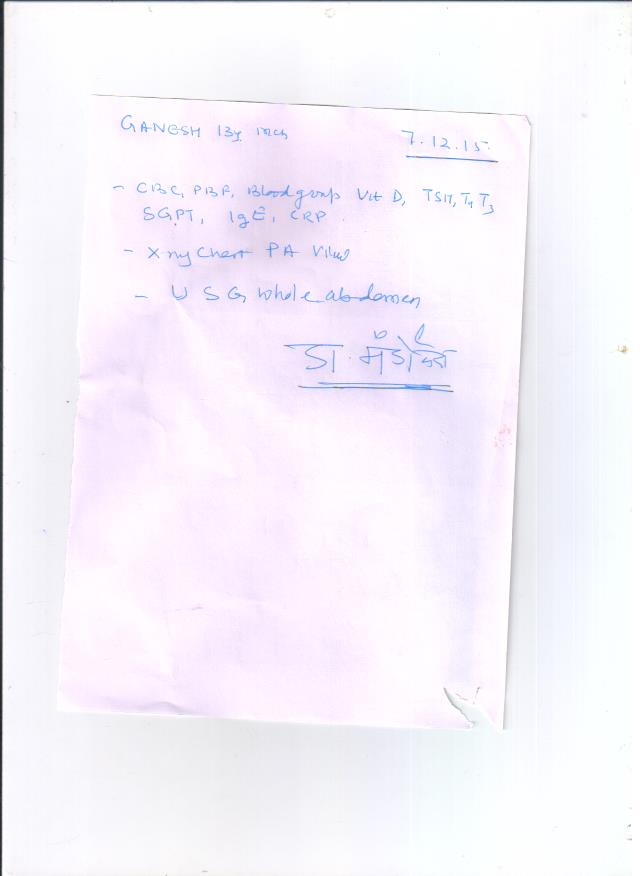 GANESH 13y mch
7.12.15.
- CBC, PBF, Blood group Vit D, TSH, T4 T3
SGPT, IgE, CRP.
- Xray Chest PA View
- USG whole abdomen
डा.